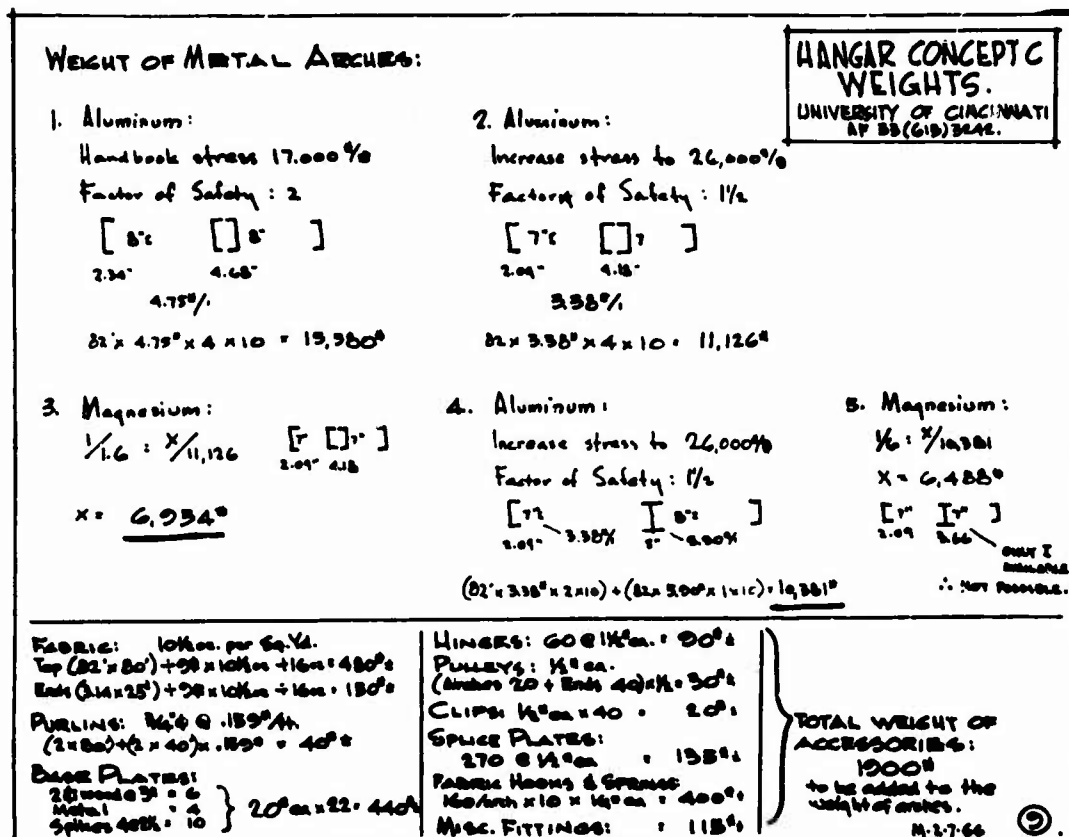 WEIGHT OF METAL ARCHES:
HANGAR CONCEPT C
WEIGHTS.
UNIVERSITY OF CINCINNATI
AF 33(615)3242.
1. Aluminum:
Handbook stress 17.000 #/▫
Factor of Safety : 2
[ 8"[ [] 8" ]
2.34" 4.68"
4.75#/'
82' x 4.75# x 4 x 10 = 15,580#
2. Aluminum:
Increase stress to 26,000#/▫
Factor of Safety: 1½
[ 7"[ [] 7 ]
2.09" 4.18"
3.38#/'
82 x 3.38# x 4 x 10 = 11,126#
3. Magnesium:
1/1.6 = x/11,126 [7" [] 7" ]
2.09" 4.18
x = 6,954#
4. Aluminum:
Increase stress to 26,000#/▫
Factor of Safety: 1½
[ I 8"[ ]
2.09" 3.38#/'
(82' x 3.38# x 2 x 10) + (82 x 5.90# x 1 x 10) = 10,381#
5. Magnesium:
x/10,381
X = 6,488#
[ 7" I 7" ]
2.09 3.66
ONLY I
AVAILABLE
∴ NOT POSSIBLE.
FABRIC: 10½oz. per Sq.Yd.
Top (82' x 80') ÷ 9# x 10½oz ÷ 16oz = 480#±
Ends (3.14 x 25²) ÷ 9# x 10½oz ÷ 16oz = 130#±
PURLINS: ¾"ϕ @ .159#/ft.
(2 x 80) + (2 x 40) x .159# = 40#±
BASE PLATES:
wood @ 3# = 6
Metal = 4
Spikes = 10
20# ea x 22 = 440#±
HINGES: 60 @ 1½# ea. = 90#±
PULLEYS: ½# ea.
(Arches 20 + Ends 40) x ½ = 30#±
CLIPS: ½# ea x 40 = 20#±
SPLICE PLATES:
270 @ ½# ea = 135#±
FABRIC HOOKS & SPRINGS
160/arch x 10 x ¼# ea = 400#±
MISC. FITTINGS: = 115#±
TOTAL WEIGHT OF
ACCESSORIES:
1900#
to be added to the
weight of arches.
M-2-7-66
9.